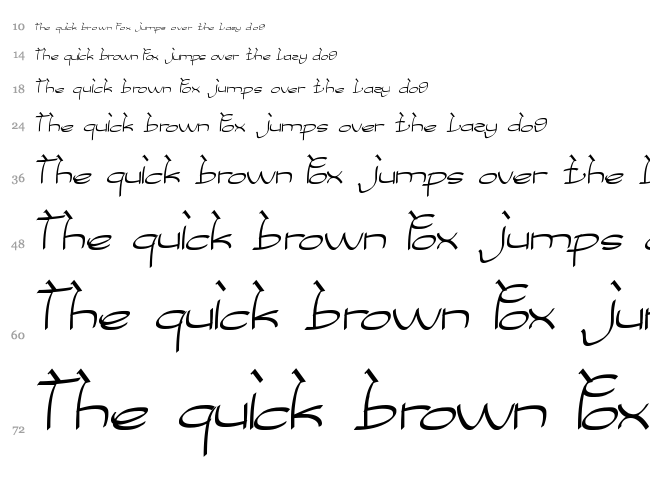 10 The quick brown Fox jumps over the Lazy dog
14 The quick brown Fox jumps over the Lazy dog
18 The quick brown Fox jumps over the Lazy dog
24 The quick brown Fox jumps over the Lazy dog
36 The quick brown Fox jumps over the
48 The quick brown Fox jumps
60 The quick brown Fox
72 The quick brown Fox